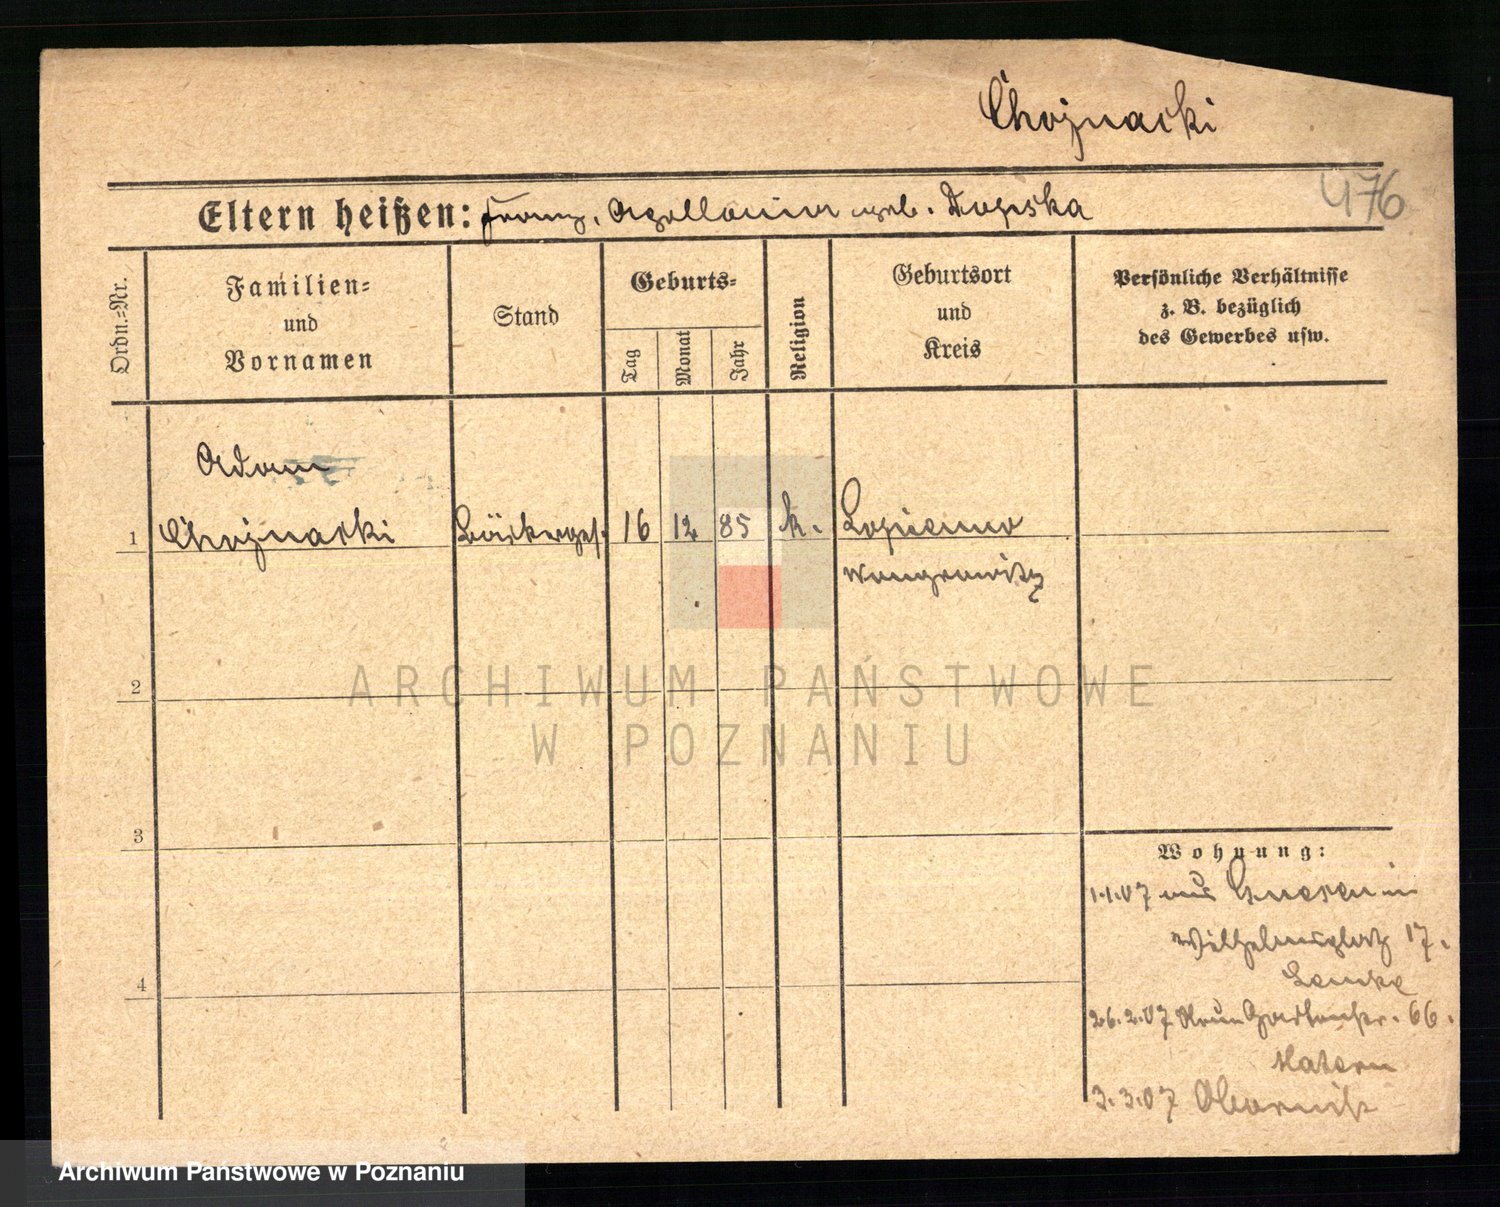 Chojnacki
476
Eltern heißen: Franz, Apollonia geb. Dupska
Ordn.-Nr.
Familien-
und
Vornamen
Stand
Geburts-
Tag
Monat
Jahr
Religion
Geburtsort
und
Kreis
Persönliche Verhältnisse
z. B. bezüglich
des Gewerbes usw.
Adam
1 Chojnacki Bäckerges. 16 12 85 k. Lopienno
Wongrowitz
2
ARCHIWUM PAŃSTWOWE
W POZNANIU
3
Wohnung:
1.1.07 aus Gnesen in
Wilhelmsplatz 17.
Lemke
26.2.07 Neue Gartenstr. 66.
Matern
4
3.3.07 Obornik
Archiwum Państwowe w Poznaniu